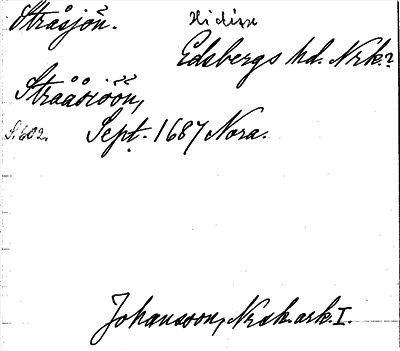 Stråsjön.
Edsbergs hd. Nrk?
Strååsiöön,
S. 602. Sept. 1687 Nora.
Johansson, Nrsk. ark. I.